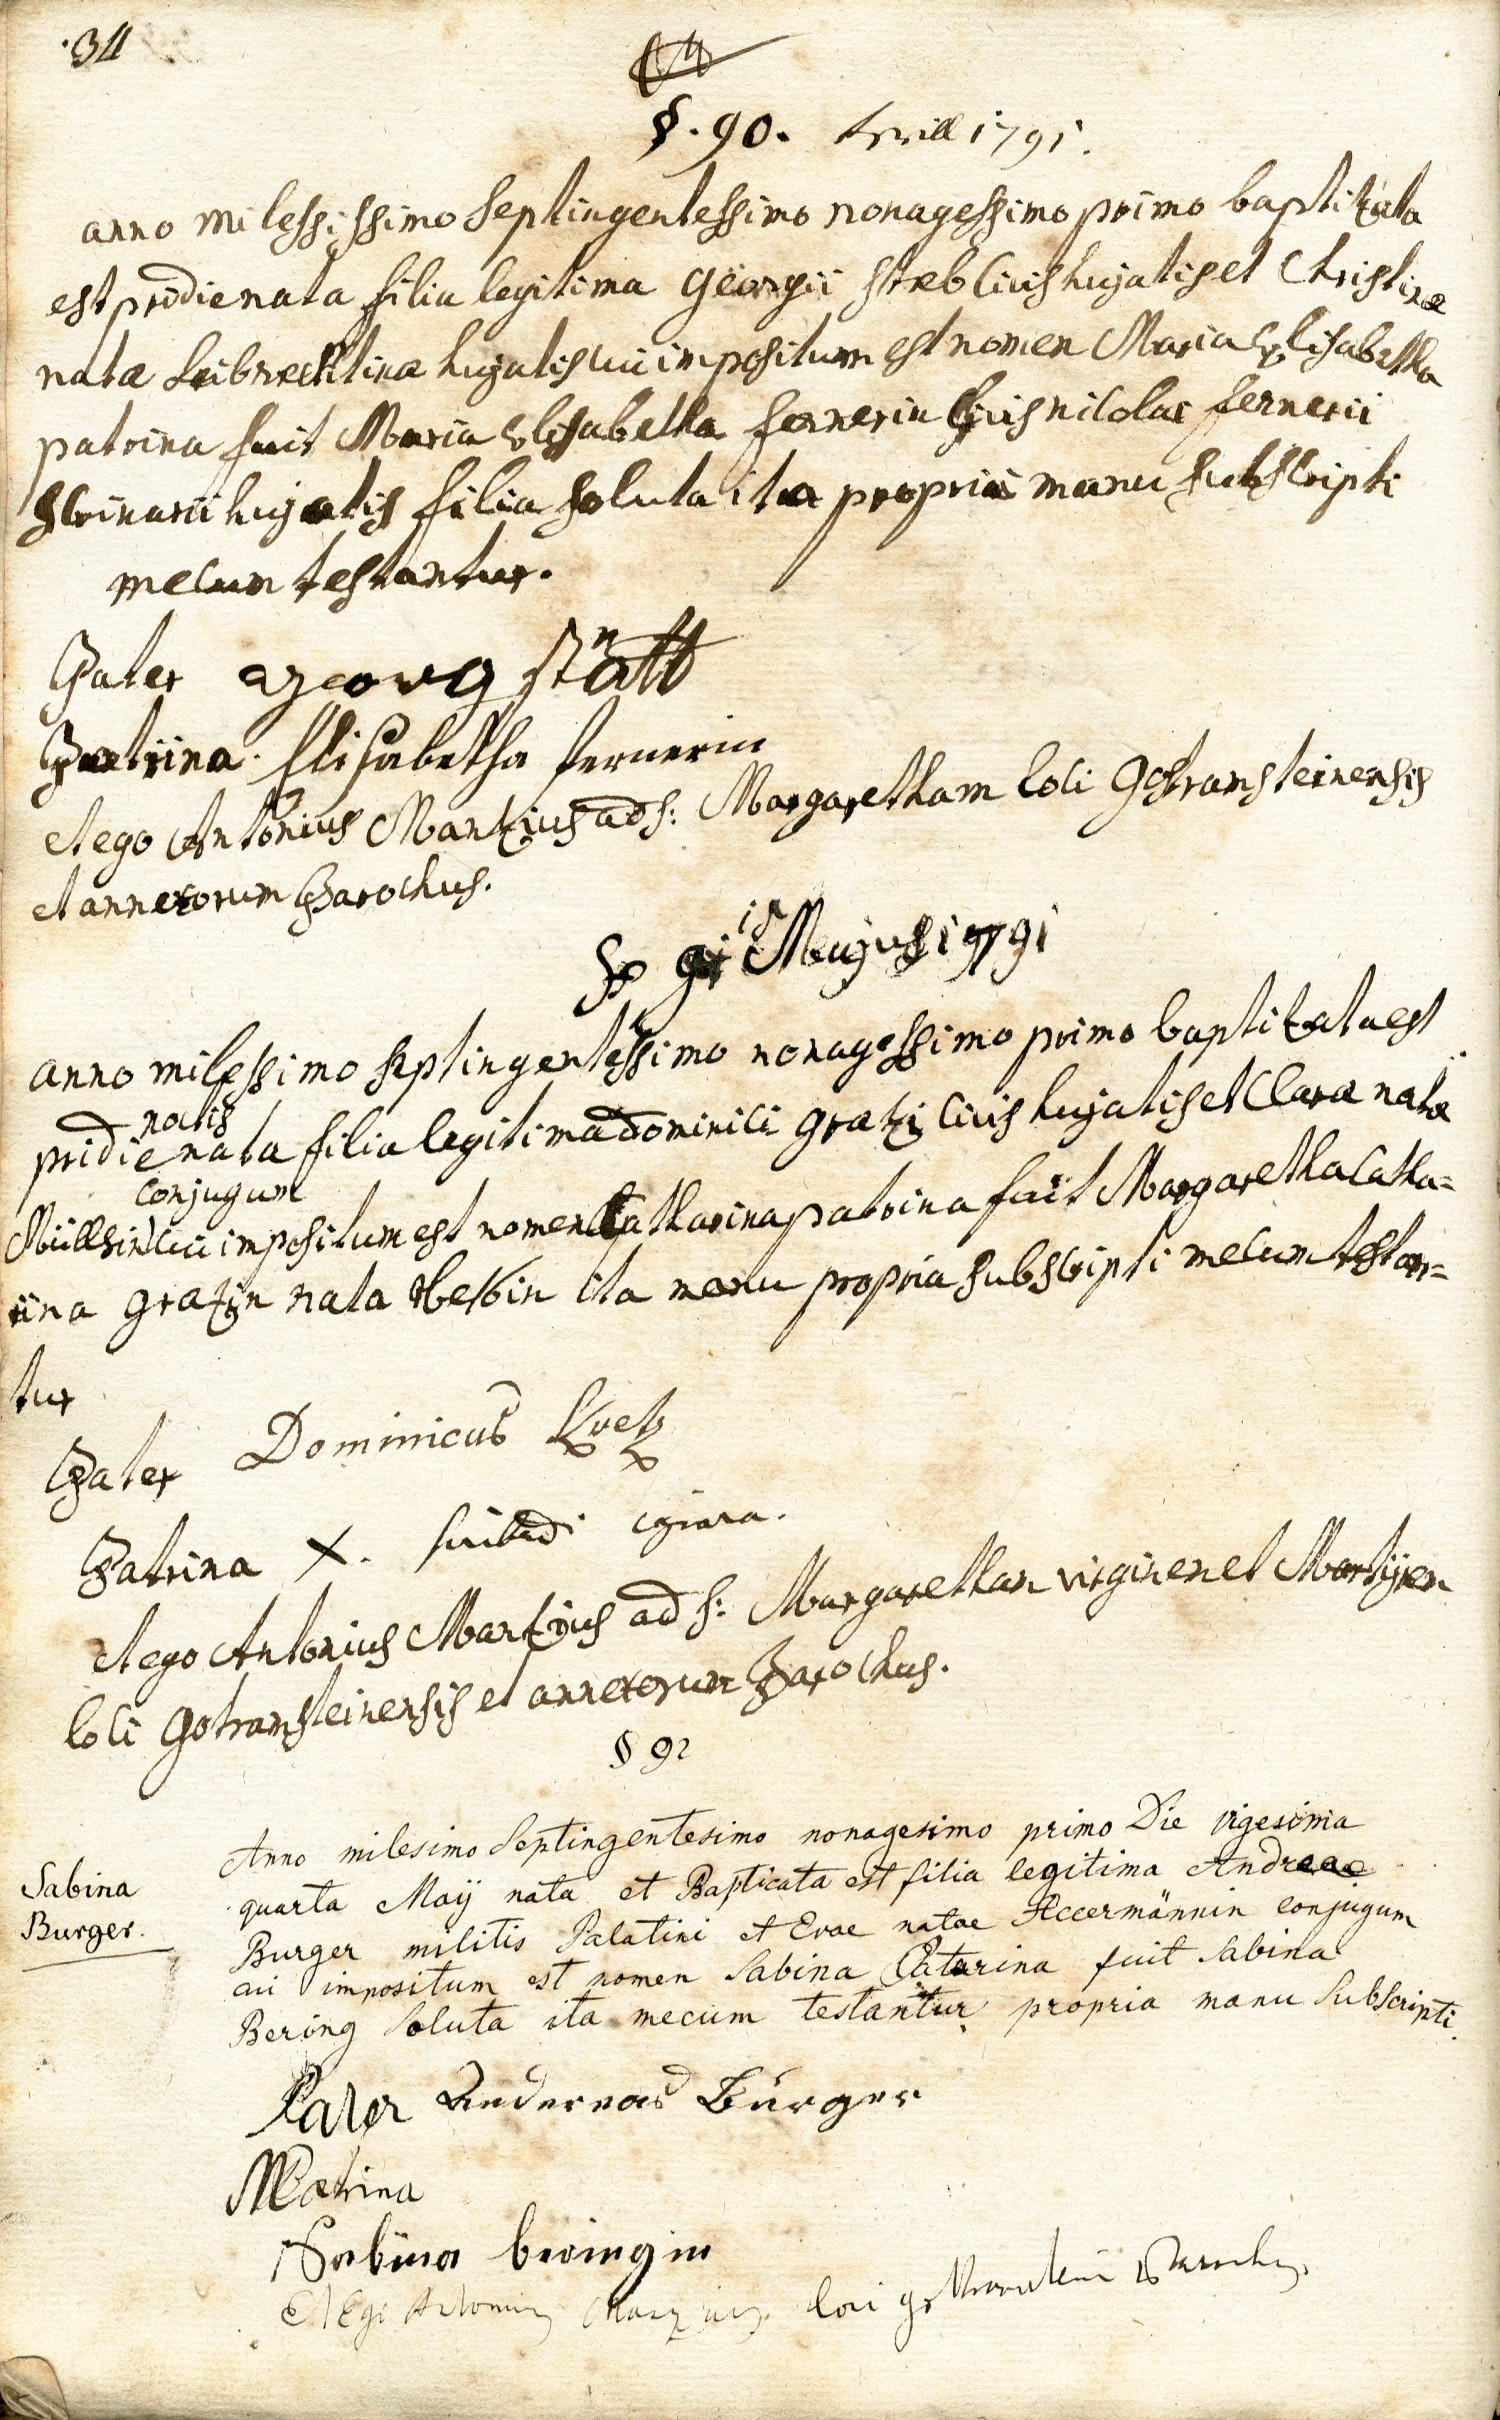 34
§. 90. Aprill 1791.
anno milessissimo septingentessimo nonagessimo primo baptizata
est pridie nata filia legitima Georgii Streb Civis hujatis et Christinæ
natæ Leibrechtinæ hujatis cui impositum est nomen Maria Elisabetha
patrina fuit Maria Elisabetha fernerin Civis nicolai fernerii
scrinarii hujatis filia soluta ita propria manu subscripti
mecum testantur.
Pater georg
Patrina Elisabetha fernerin
et ego Antonius Martzius ad s: Margaretham loci Gostramsteinensis
et annexorum Parochus.
§ 91 Majus 1791
anno milessimo septingentessimo nonagessimo primo baptizata est
natis
pridie nata filia legitima dominici gratz Civis hujatis et Claræ natæ
conjugum
Müllerin cui impositum est nomen Catharina patrina fuit Margaretha Catha=
rina gratzin nata ita manu propria subscripti mecum testan=
tur
Pater Dominicus
Patrina X.
et ego Antonius Martzius ad s: Margaretham virginem et Martyren
loci Gotramsteinensis et annexorum Parochus.
§ 92
Sabina
Burger.
Anno milesimo Septingentesimo nonagesimo primo Die vigesima
quarta Maÿ nata et Bapticata est filia legitima Andreae
Burger militis Palatini et Evae natae Accermännin conjugum
cui impositum est nomen Sabina Patarina fuit Sabina
Bering Soluta ita mecum testantur propria manu Subscripti.
Pater Andereas Bürger
Matrina
Sabina beringin
et Ego Antonius Martzius loci Parochus